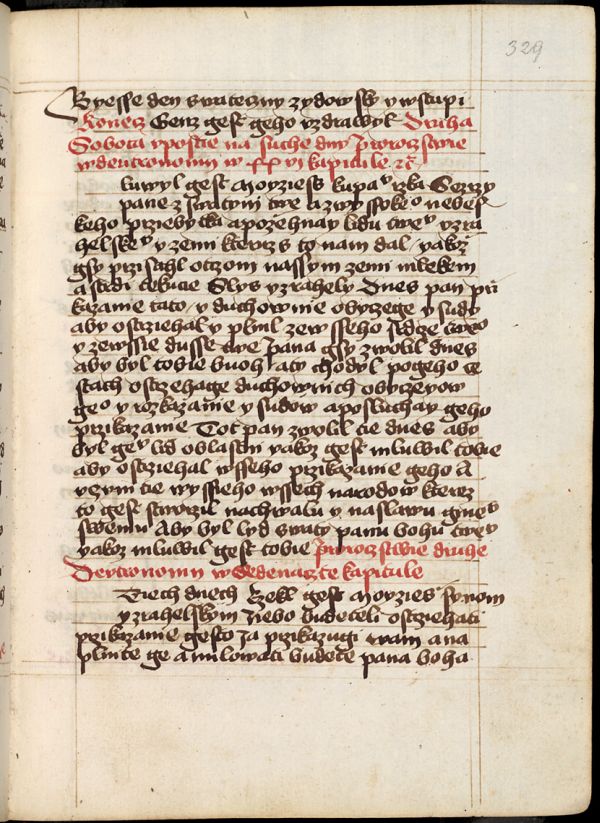 329
Byesse den swateczny zydowsky y wstupi
Konecz Genz gest geho vzdrawyl Druha
Sobota vpostie na suche dny prorocztwie
w deutronomy w xxvi kapitule etc
luwyl gest Moyziess kupaᵘ rzka Gezzy
pane z swatym twe a z wyssokeᵒ nebes
keho prziebytka apozehnay lidu tweᵘ yzra
helskeᵘ y zemi kteruzs to nam dal yakoz
gsy przisahl otczom nassym zemi mlekem
a stredi tekuce Slys yzrahely Dnes pan pri
kazanie tato y duchownie obyczege y sudy
aby ostrziehal y plnil zewsseho srdcze tweᵒ
y zewssie dusse twe Pana gsy zwolil dnes
aby byl tobie buoh aty chodyl pogeho ce
stach ostrzehage duchownich obyczeyow
geᵒ y rozkazanie y sudow aposluchay geho
przikazanie Tot pan zwolil tie dnes aby
byl geᵘ lid oblastni yakoz gest mluwil tobie
aby ostrziehal wsseho przikazanie geho A
vczym tie wyssieho wssech narodow kterez
to gest stworzil nachwalu y naslawu gmeᵘ
swemu Aby byl lyd swaty panu bohu tweᵘ
yakoz mluwil gest tobie Prorocztwie druhe
Deutronomy w Gedenaczte kapitule
Tiech dnech Rzekl gest Moyzies synom
yzrahelskym Nebo budeteli ostrziehati
przikazanie gesto Ja przikazugi wam ana
plnite ge a milowati budete pana boha